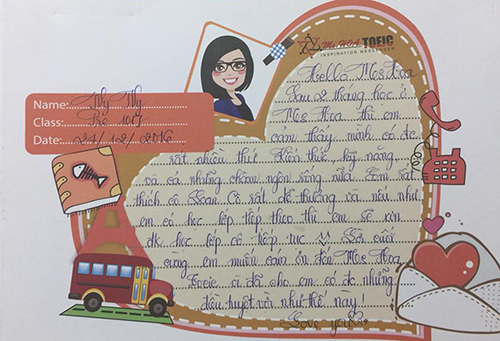 Ms.HOA TOEIC
INSPIRATION MESSENGER
Name: Ny Ny
Class: Pre 107
Date: 21/12/2016
Hello Ms Hoa
Sau 2 tháng học ở
Ms Hoa thì em
cảm thấy mình có đc
rất nhiều thứ. Kiến thức, kỹ năng
và cả những châm ngôn sống nữa. Em rất
thích cô Xoan. Cô rất dễ thương và nếu như
em có học lớp tiếp theo thì em sẽ xin
đk học lớp cô tiếp tục Lời cuối
cùng em muốn cảm ơn đến Ms Hoa
Toeic vì đã cho em có đc những
điều tuyệt vời như thế này!
Love you